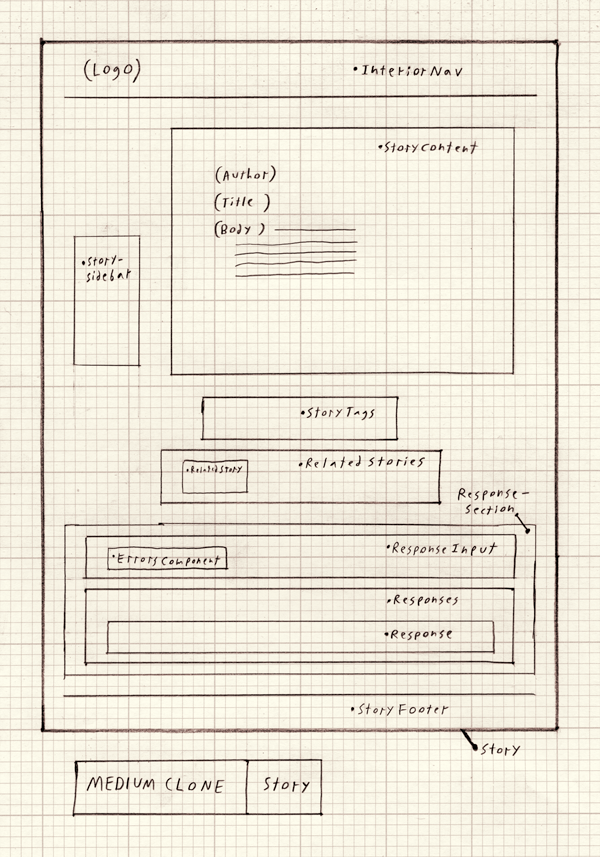 (Logo)
•InteriorNav
•StoryContent
(Author)
(Title )
(Body )
•Story-
sidebar
•StoryTags
•Related Stories
•RelatedStory
Response-
section
•Response Input
•ErrorsComponent
•Responses
•Response
•Story Footer
Story
MEDIUM CLONE
Story